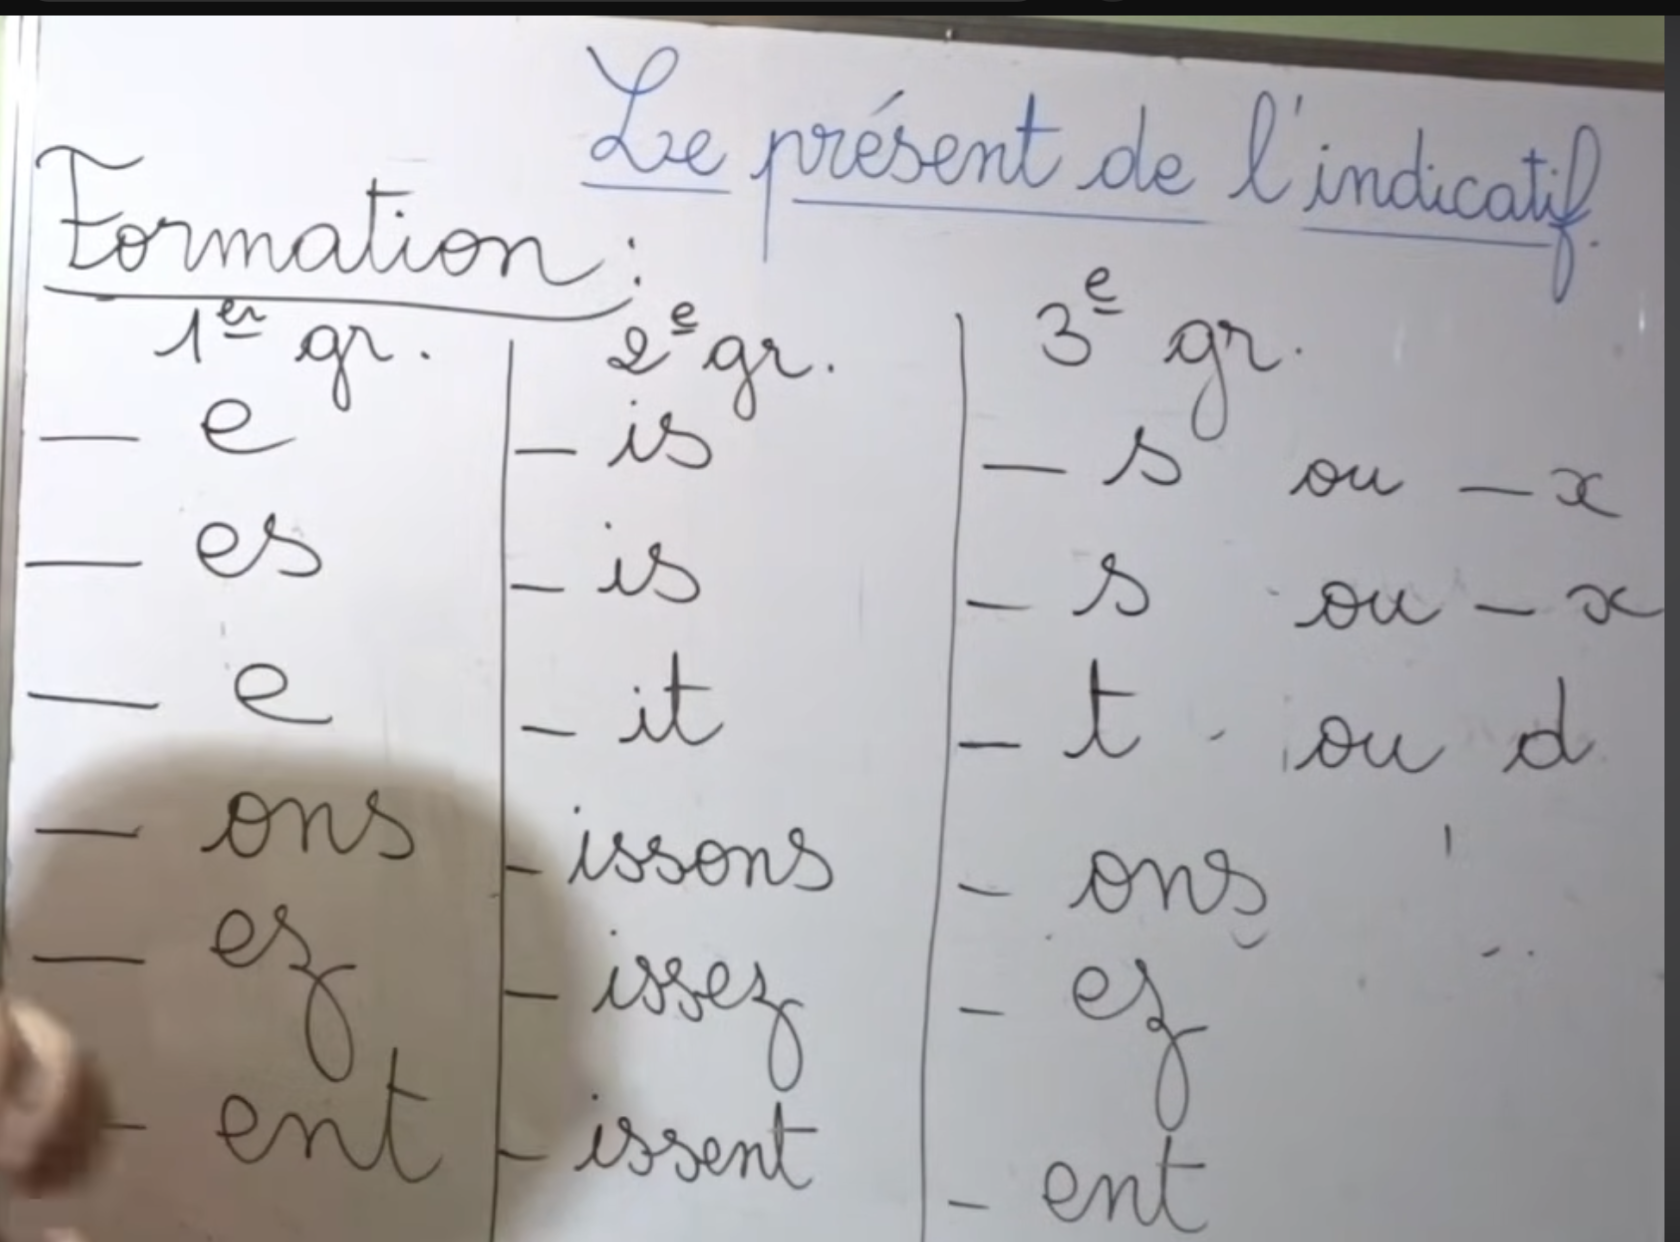 Le présent de l'indicatif.
Formation :
1er gr. 2e gr. 3e gr.
— e - is — s ou — x
— es - is - s ou - x
— e - it - t ou d
— ons - issons - ons
— ez - issez - ez
- ent - issent - ent